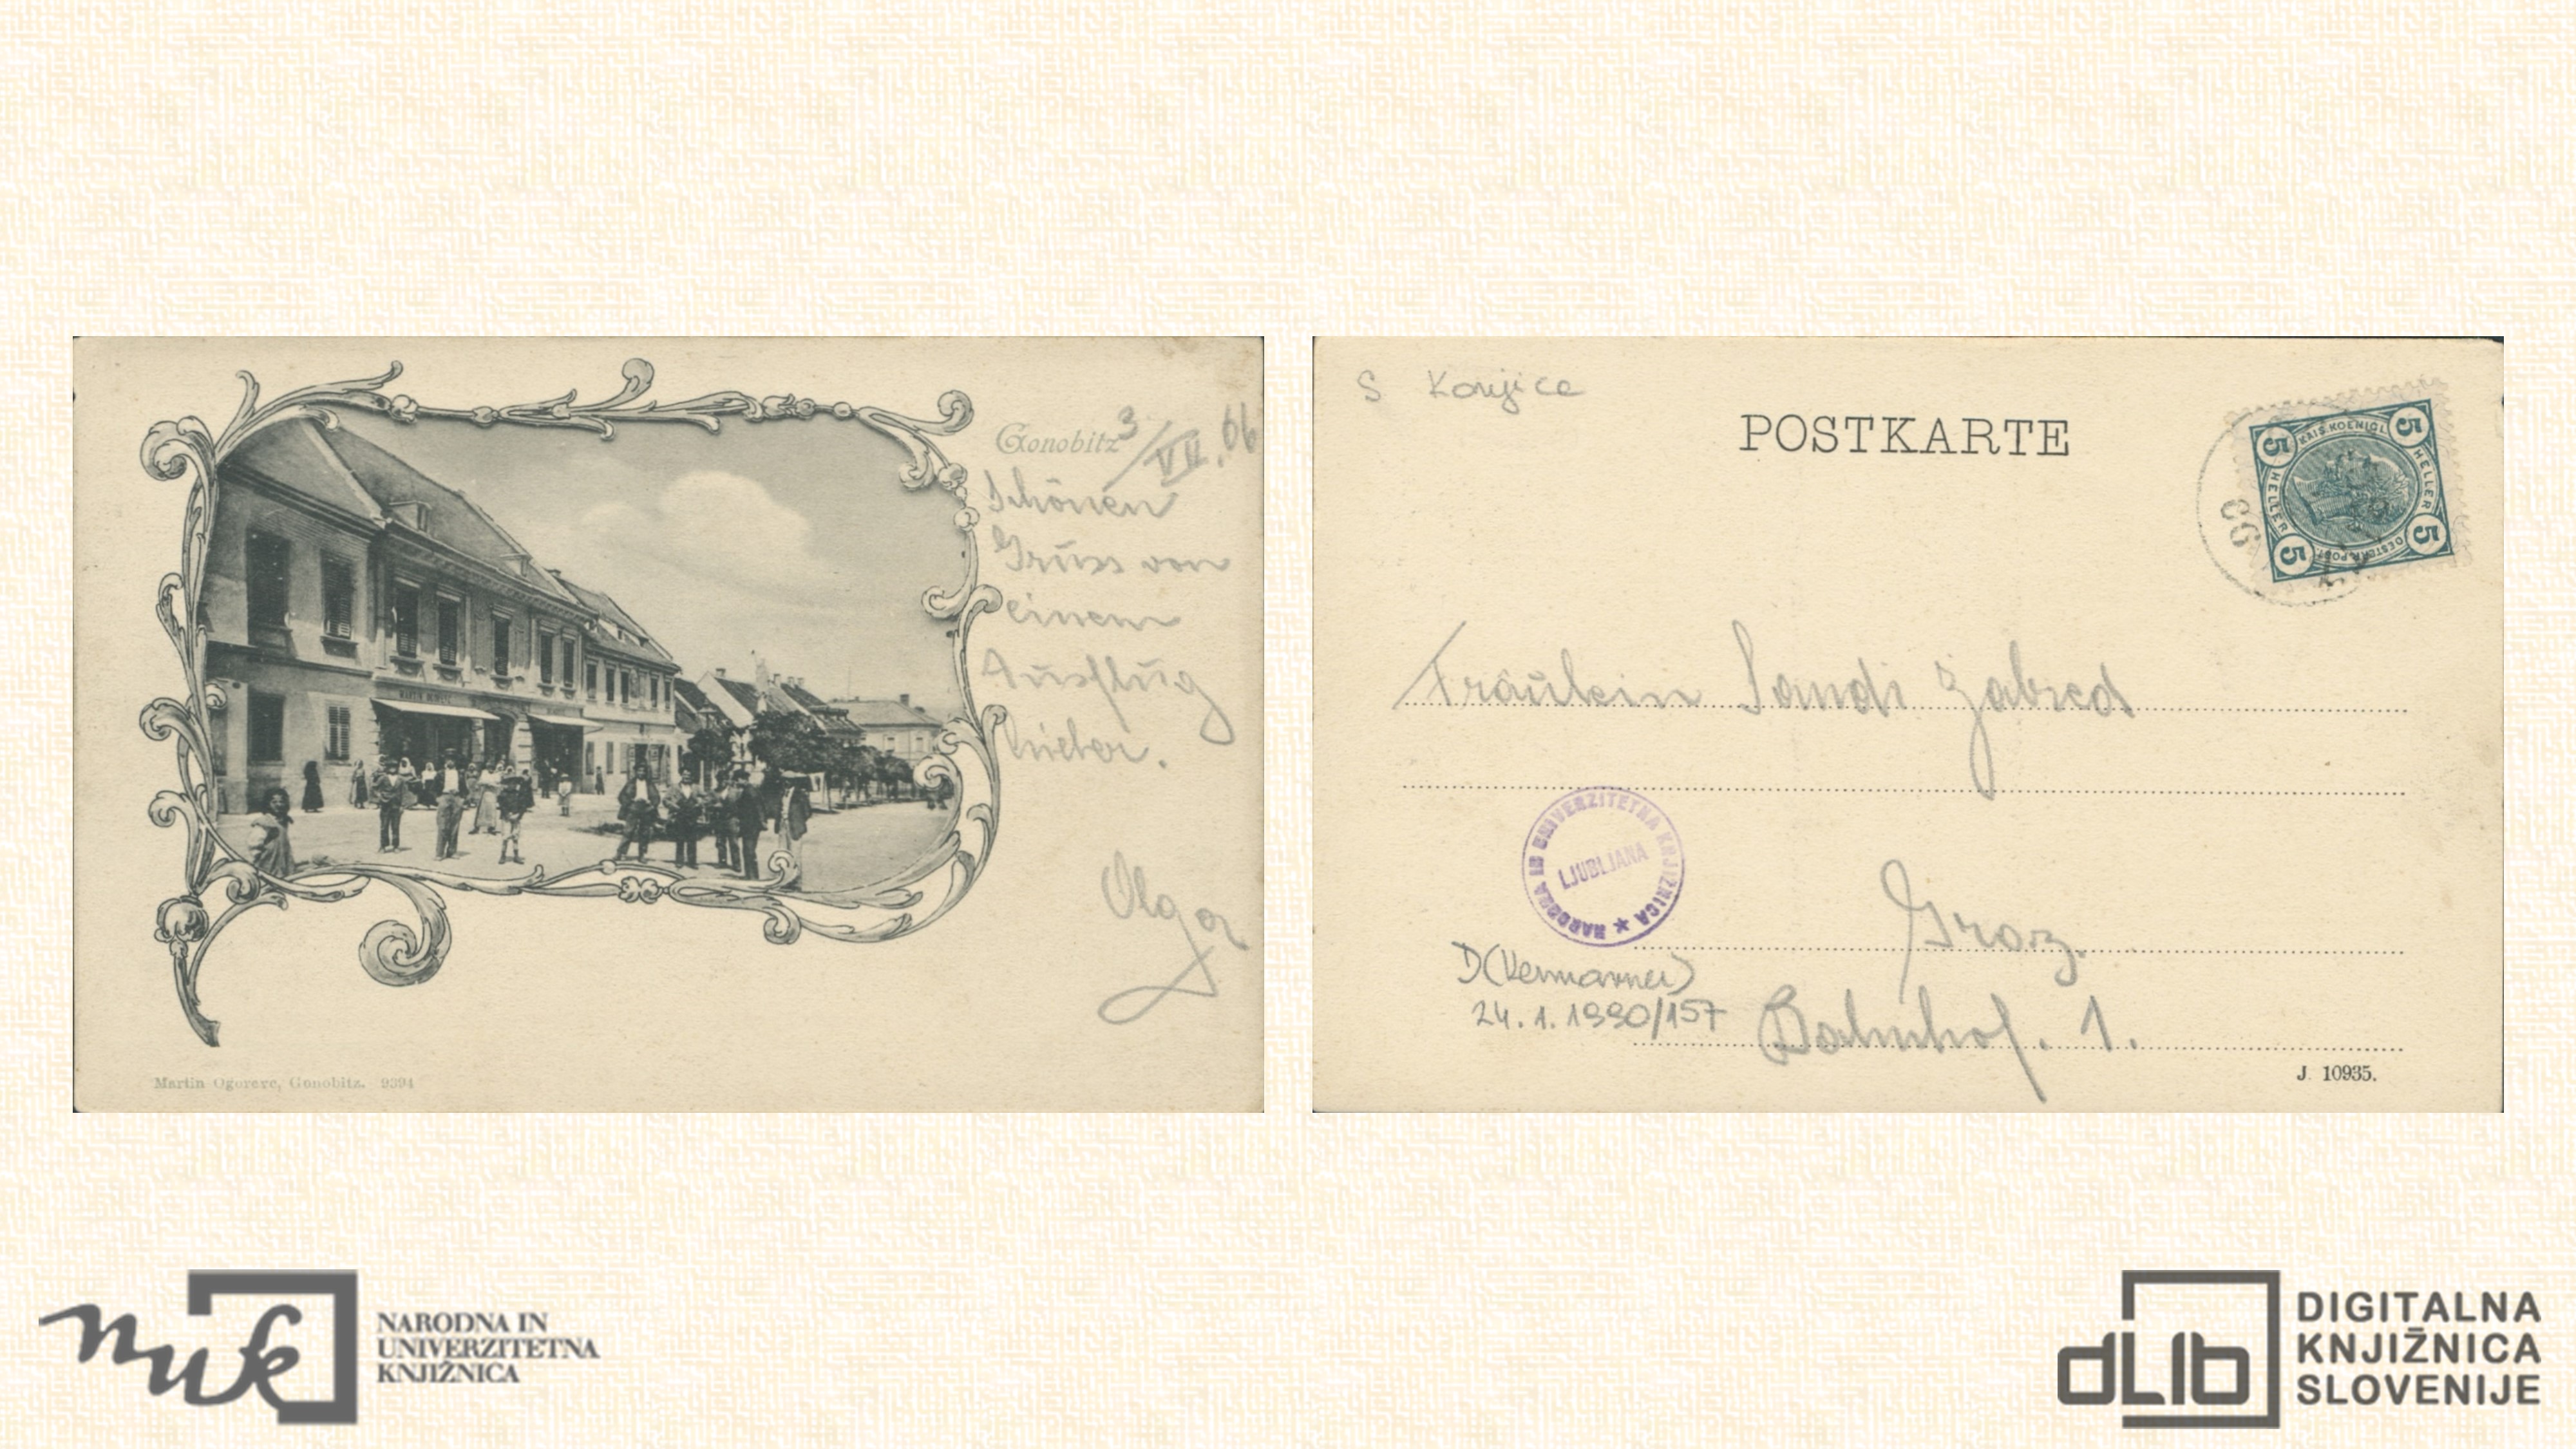 Gonobitz 3/VII. 06
Schönen
Gruss von
einem
Ausflug
hieher.
Olga
Martin Ogorevc, Gonobitz. 9394
S Konjice
POSTKARTE
5 KAIS. KOENIGL. 5
HELLER HELLER
5 OESTERR. POST 5
Fräulein Sandi
NARODNA IN UNIVERZITETNA KNJIŽNICA ★
LJUBLJANA
Graz
D(Kermavner)
24.1.1990/157
Bahnhof. 1.
J. 10935.
nuk
NARODNA IN
UNIVERZITETNA
KNJIŽNICA
dLib
DIGITALNA
KNJIŽNICA
SLOVENIJE